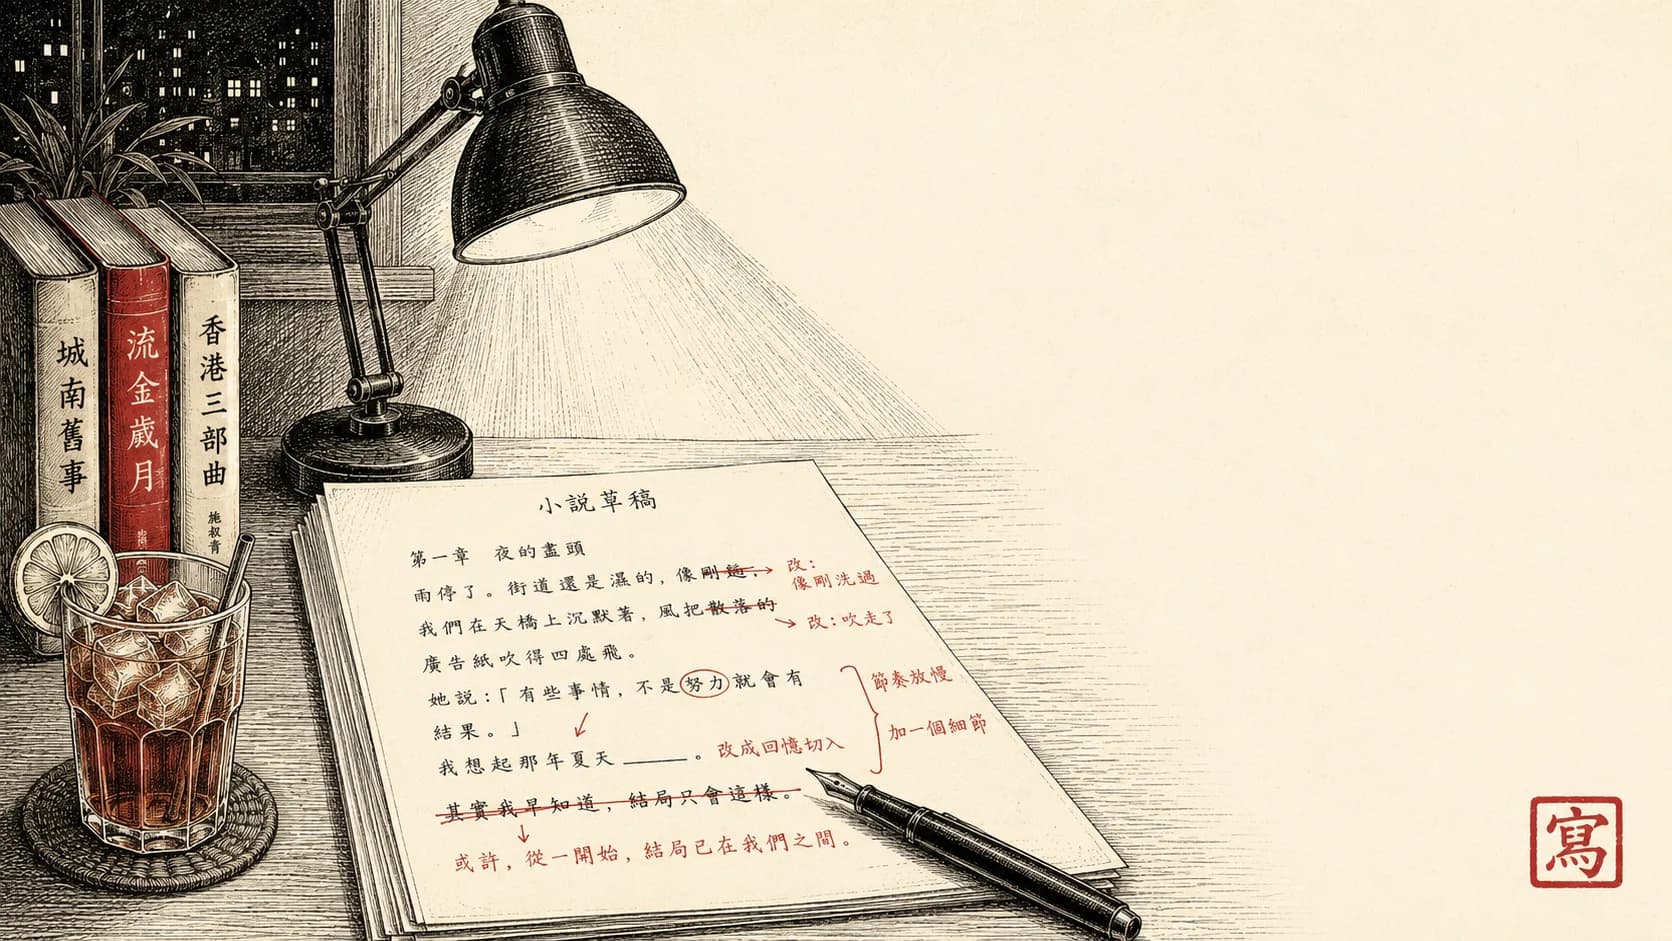 城南舊事
流金歲月
香港三部曲
施叔青
小說草稿
第一章 夜的盡頭
雨停了。街道還是濕的，像剛
改：
像剛洗過
我們在天橋上沉默著，風把散落的
改：吹走了
廣告紙吹得四處飛。
她說：「有些事情，不是努力就會有
結果。」
節奏放慢
加一個細節
我想起那年夏天______。改成回憶切入
其實我早知道，結局只會這樣。
或許，從一開始，結局已在我們之間。
寫